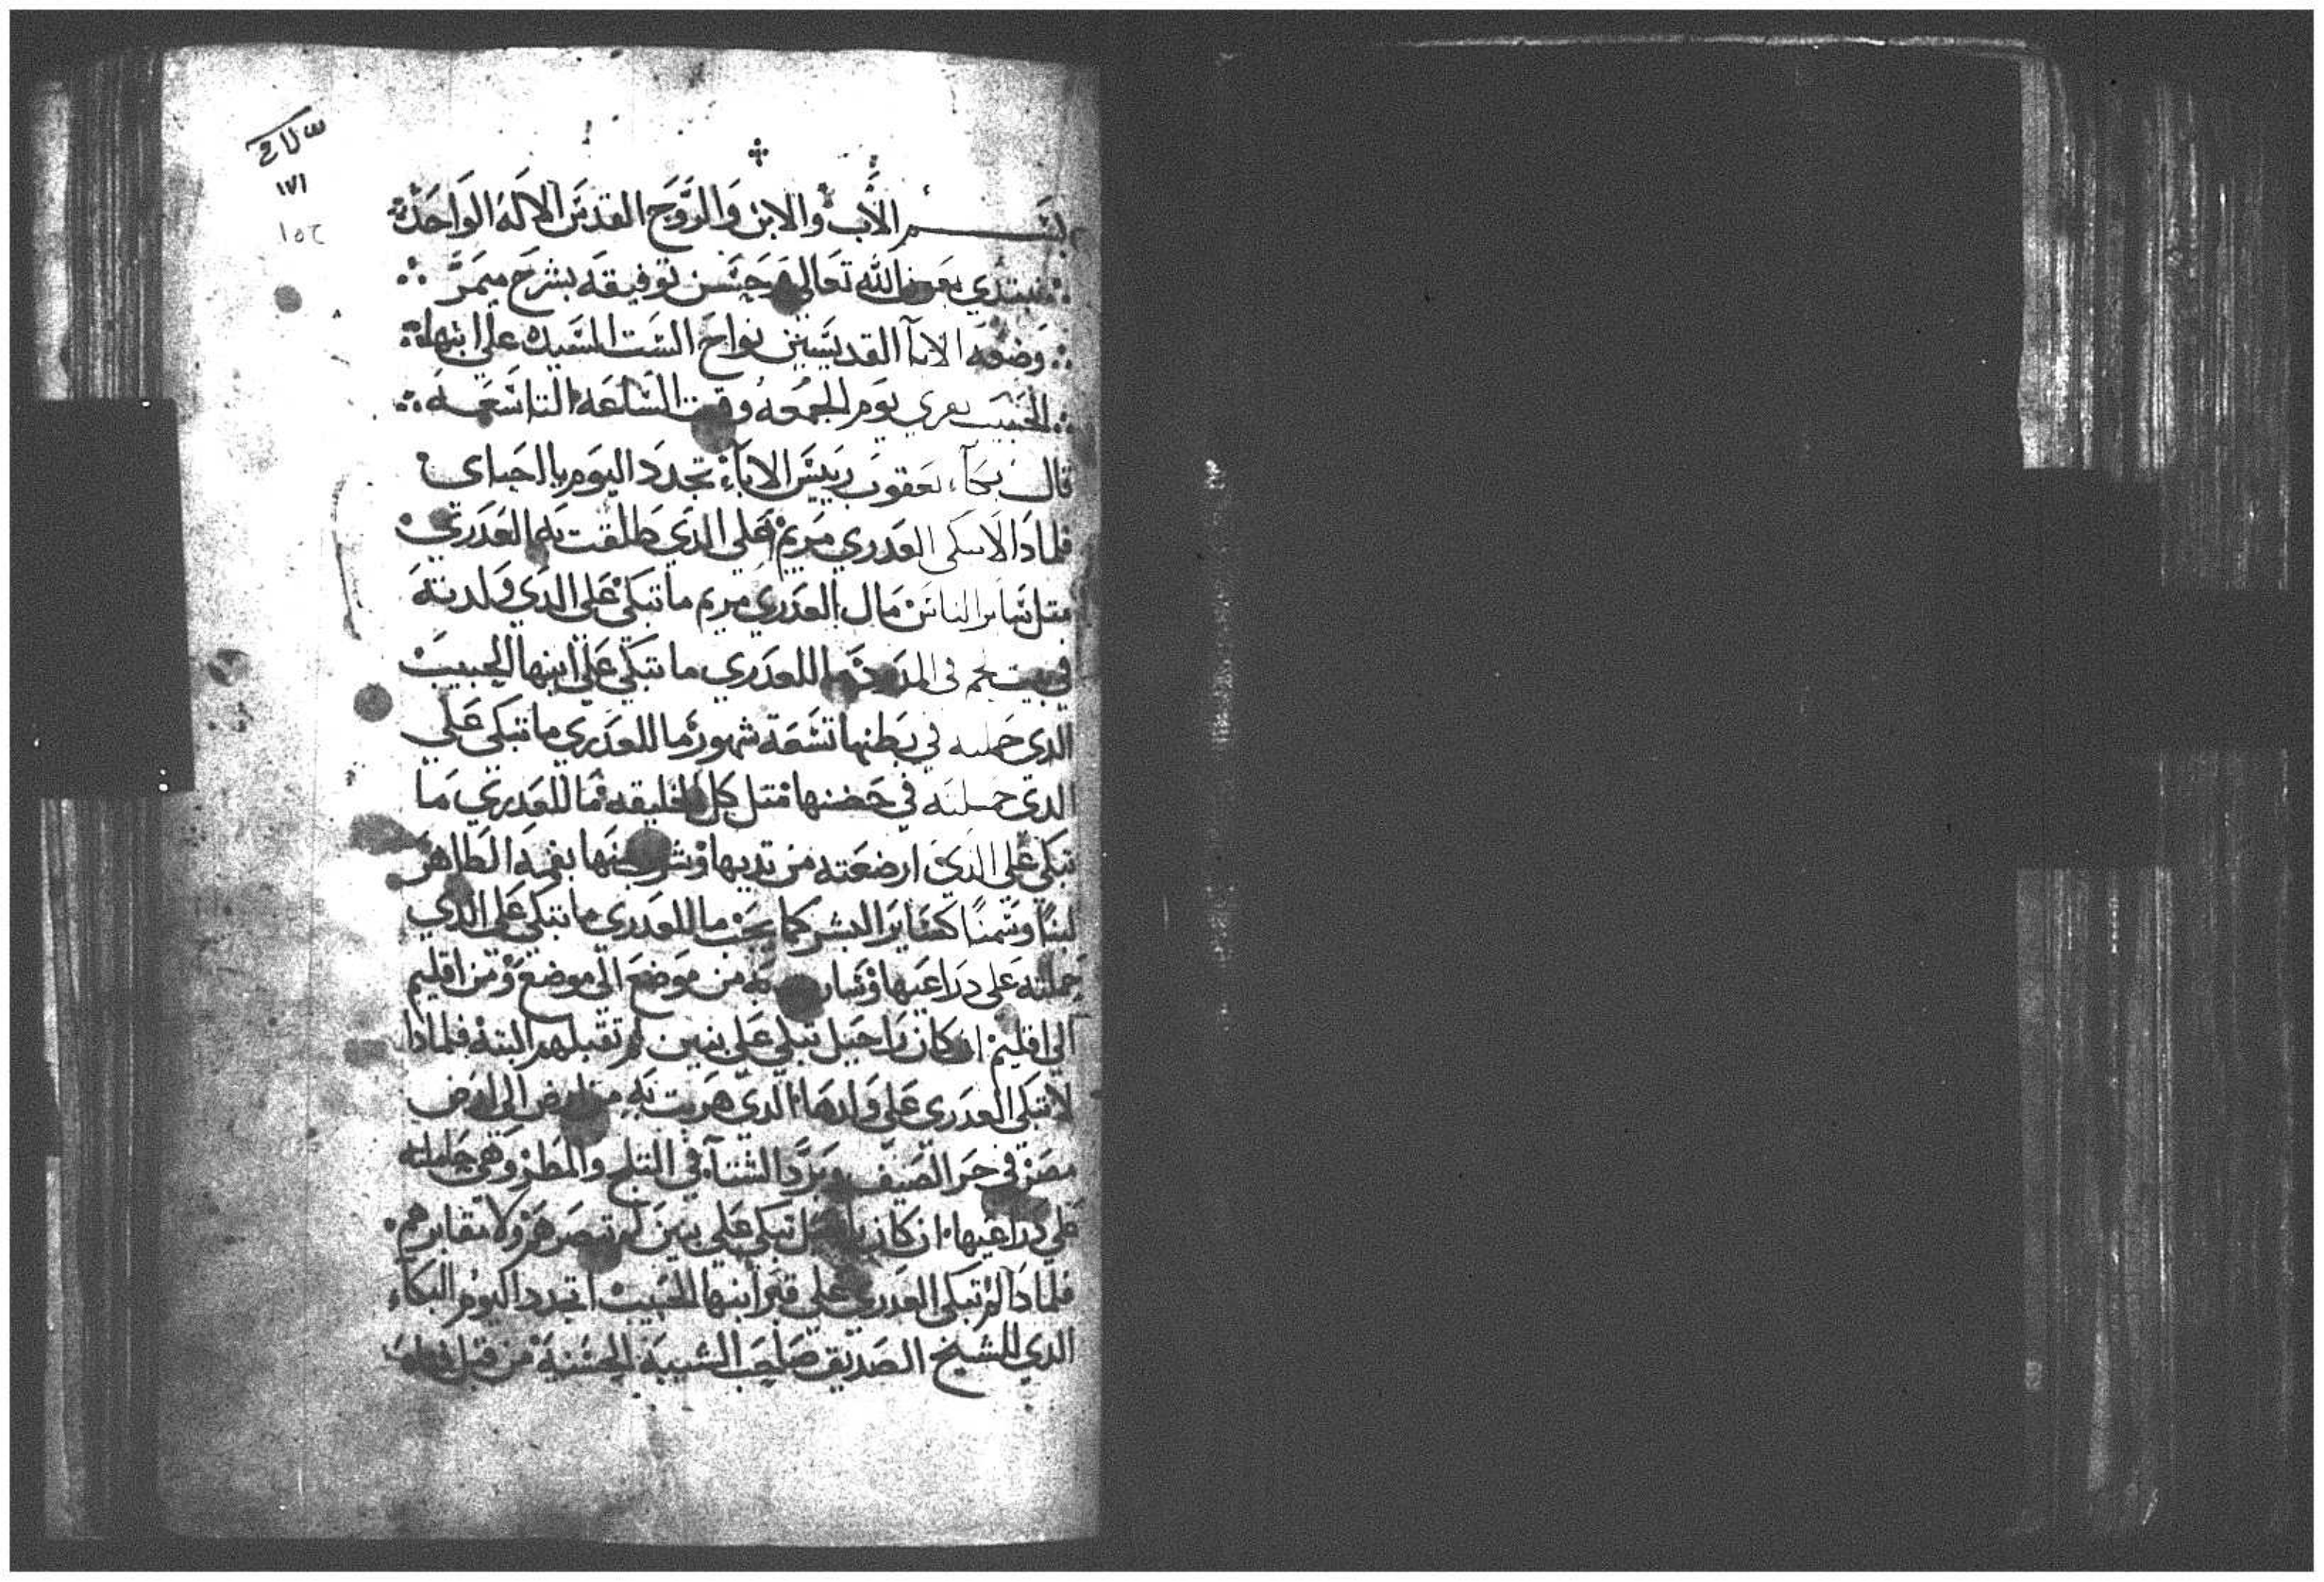 ١٧١
١٥٢
بسم الاب والابن والروح القدس الاله الواحد
نبتدي بعون الله تعالي وحسن توفيقه بشرح ميمر
وضعه الابآ القديسين نواح الست السيده علي ابنها
الحبيب يقري يوم الجمعه وقت الساعه التاسعه
قال بكآء يعقوب رييس الابآء تجدد اليوم يا احباى
فلمادا لا تبكى العدري مريم على الدي طلقت به العدري
متل ساير الناس مال العدري مريم ما تبكي على الدي ولدته
في بيت لحم فى المدود ما للعدري ما تبكي علي ابنها الحبيب
الدى حملته في بطنها تسعة شهور ما للعدري ما تبكى علي
الدى حملته في حضنها متل كل الخليقه ما للعدري ما
تبكي علي الدي ارضعته من تديها بفمه الطاهر
لبنًا وسمنًا كساير البشر كما يجب ما للعدري ما تبكي على الدي
حملته على دراعيها وسارت به من موضع الى موضع ومن اقليم
الي اقليم ان كان راحيل تبكي علي بنين لم تقبلهم البته فلمادا
لا تبكى العدرى علي ولدها الدي هربت به من ارض الى ارض
مصر في حر الصيف وبرد الشتآء في التلج والمطر وهي حاملته
علي دراعيها ان كان راحيل تبكي علي بنين لم تبصرهم ولا مقابرهم
فلمادا لم تبكى العدري على قبر ابنها الحبيب اتجدد اليوم البكآء
الدي للشيخ الصديق صاحب الشيبة الحسنة من قبل